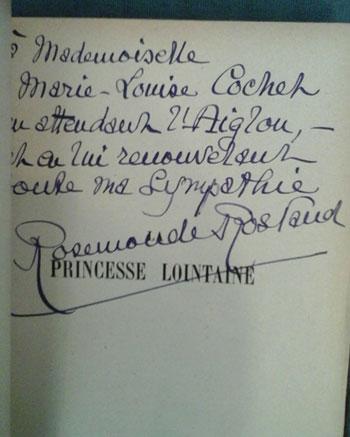 à Mademoiselle
Marie-Louise Cochet
en attendant l'Aiglon, —
et en lui renouvelant
toute ma Sympathie
Rosemonde Rostand
PRINCESSE LOINTAINE